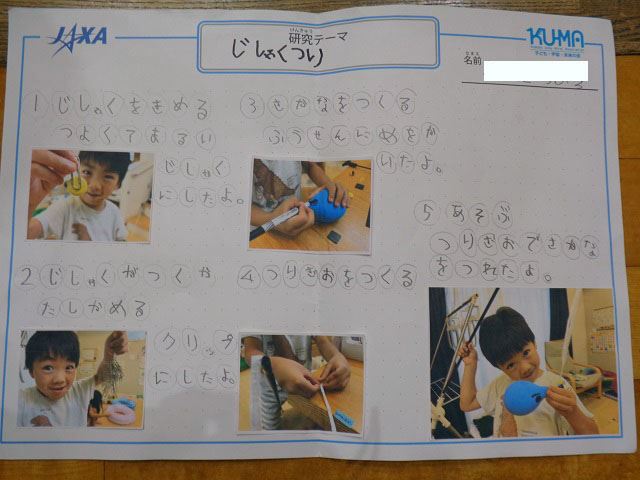 JAXA
けんきゅう
研究テーマ
じしゃくつり
KU-MA
子ども・宇宙・未来の会
なまえ
名前
1じしゃくをきめる
つよくてまるい
じしゃく
にしたよ。
2じしゃくがつくか
たしかめる
クリップ
にしたよ。
3さかなをつくる
ふうせんにめをか
いたよ。
4つりざおをつくる
5あそぶ
つりざおでさかな
をつれたよ。